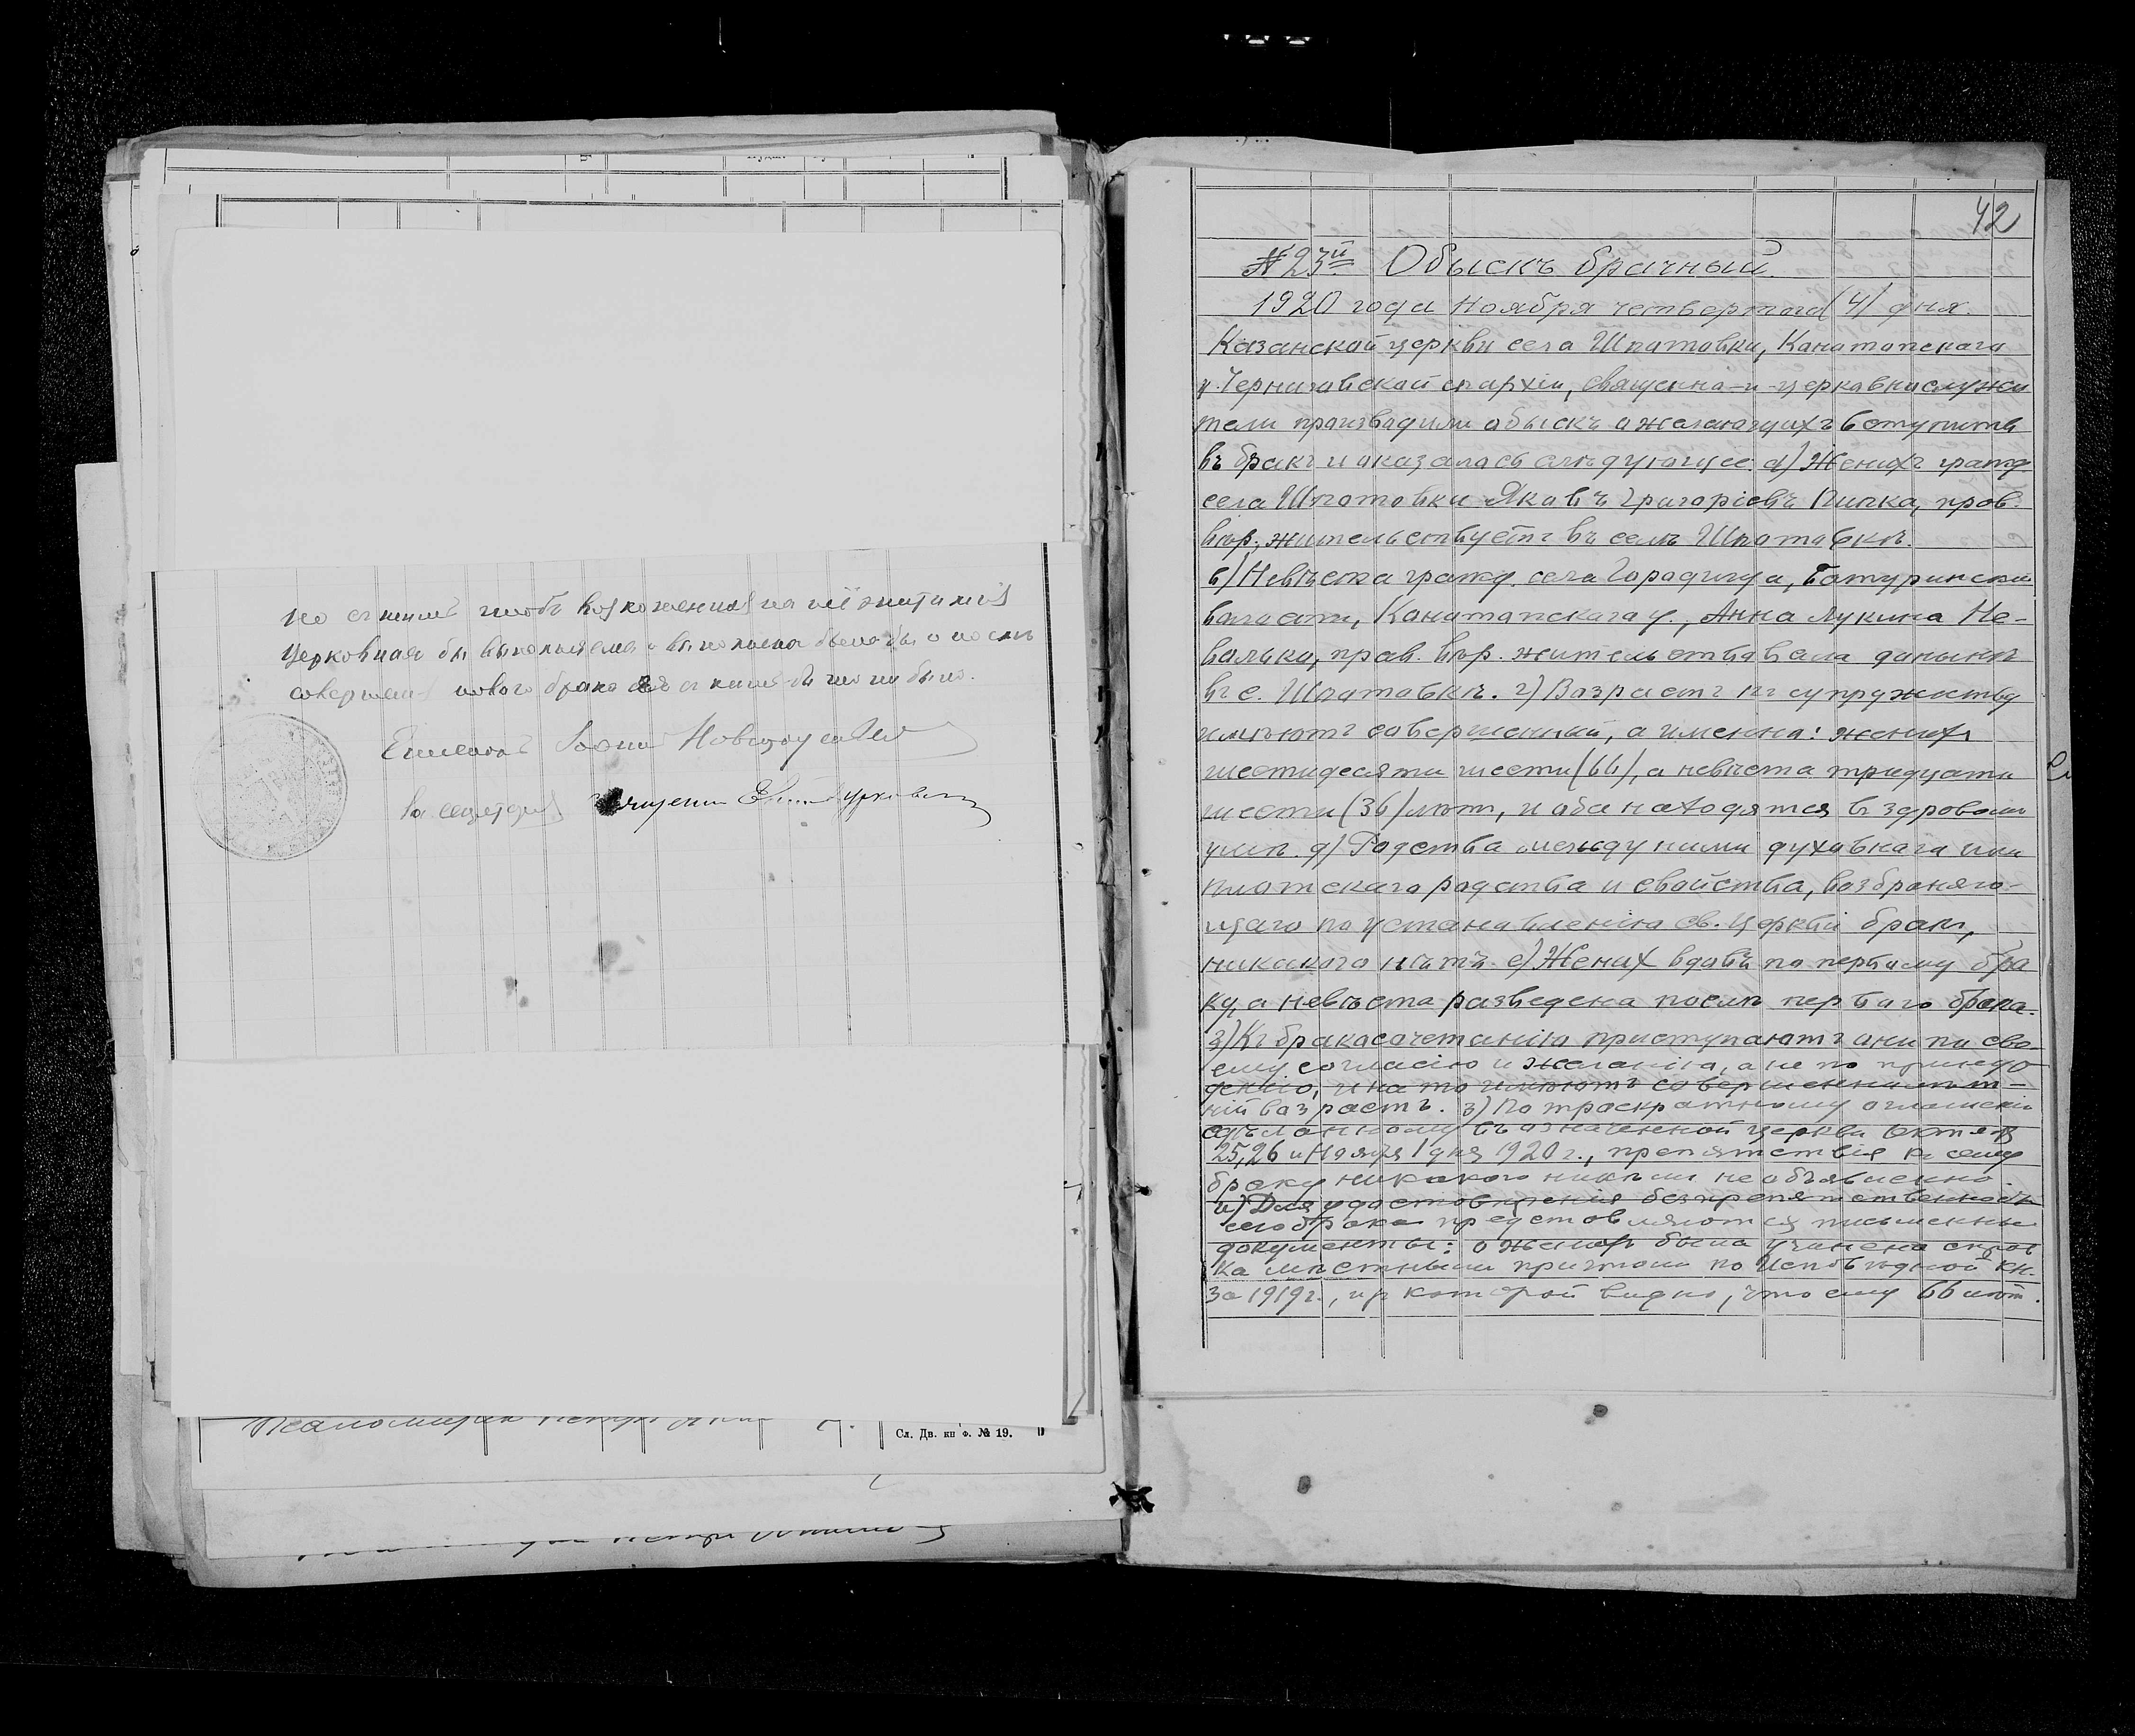 церковная бы выполняема и выполнена была бы и после
совершения нового брака
Епископъ Иоаннъ
Сл. Дв. кн ф. № 19.
42
№ 23й Обыскъ брачный
1920 года Ноября четвертого (4) дня.
Казанской церкви села Шпотовки, Конотопскаго
у. Черниговской епархіи, священно-и-церковнослужи
тели производили обыскъ о желающихъ вступить
въ бракъ и оказалось слѣдующее: а) Женихъ гражд.
села Шпотовки Яковъ Григоріевъ Пипка, прав.
вѣр., жительствуетъ въ селѣ Шпотовкѣ.
б) Невѣста гражд. села Городища, Батуринской
волости, Конотопскаго у., Анна Лукина Не-
валька, прав. вѣр. жительствовала донынѣ
въ с. Шпотовкѣ. г) Возрастъ къ супружеству
имѣютъ совершенный, а именно: женихъ
шестидесяти шести (66), а невѣста тридцати
шести (36) лѣт, и оба находятся въ здровомъ
умѣ. д) Родства между ними духовнаго или
плотскаго родства и свойства, возбраняю-
щаго по установленію св. церкви бракъ,
никакого нѣтъ. е) Женихъ вдовъ по первому бра
ку, а невѣста разведена послѣ перваго брака.
з) Къ бракосочетанію приступаютъ они по сво-
ему согласію и желанію, а не по принуж
денію, и на то имѣютъ совершеннолѣт-
ній возрастъ. з) По троекратному оглашенію
сдѣланному въ означенной церкви Октяб
25, 26 и Ноября 1 дня 1920 г., препятствія къ сему
браку никакого никѣмъ не объявлено.
и) Для удостовѣренія безпрепятственности
сего брака представляются письменные
документы: о женихѣ была учинена справ
ка мѣстнымъ причтомъ по Исповѣдной кн.
за 1919 г., изъ которой видно, что ему 66 лѣт.